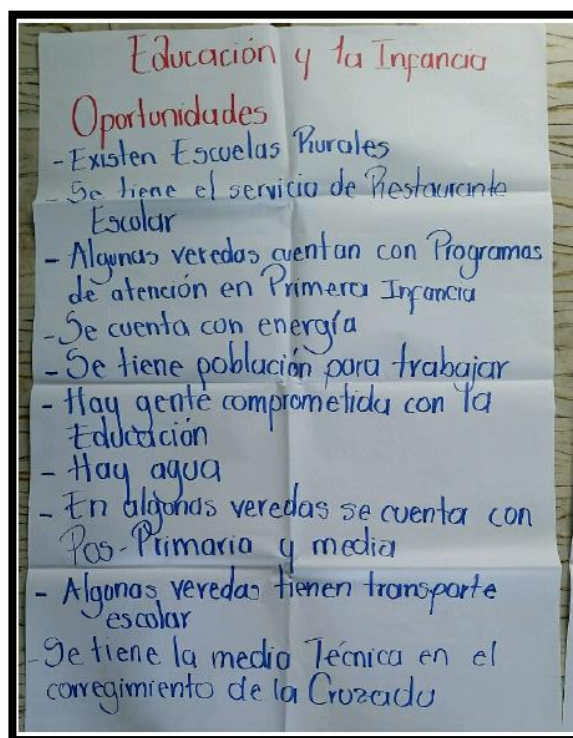 Educación y la Infancia
Oportunidades
- Existen Escuelas Rurales
- Se tiene el servicio de Restaurante
Escolar
- Algunas veredas cuentan con Programas
de atención en Primera Infancia
- Se cuenta con energía
- Se tiene población para trabajar
- Hay gente comprometida con la
Educación
- Hay agua
- En algunas veredas se cuenta con
Pos-Primaria y media
- Algunas veredas tienen transporte
escolar
- Se tiene la media Técnica en el
corregimiento de la Cruzada